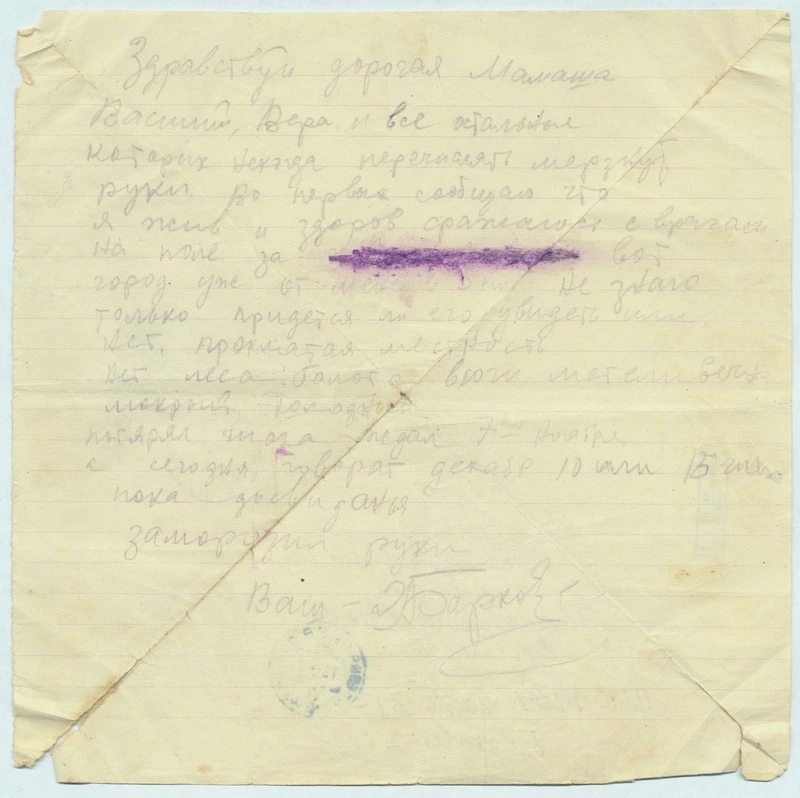 Здравствуй дорогая Мамаша
Василий, Вера и все остальные
которых некогда перечислять мерзнут
руки. Во первых сообщаю что
я жив и здоров сражаюсь с врагами
на поле за вот
город уже от не знаю
только придется ли его увидеть или
нет. местность
нет леса болота
мокрый голодный
потерял числа ждал 7го Ноября,
а сегодня говорат декабр 10 или 15 число
пока досвиданья
заморозил руки
Ваш -